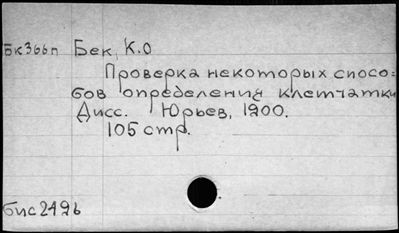 Бк366п Бек, К.О
Проверка некоторых спосо-
бов определения клетчатки
Дисс. Юрьев, 1900.
105 стр.
бис249б